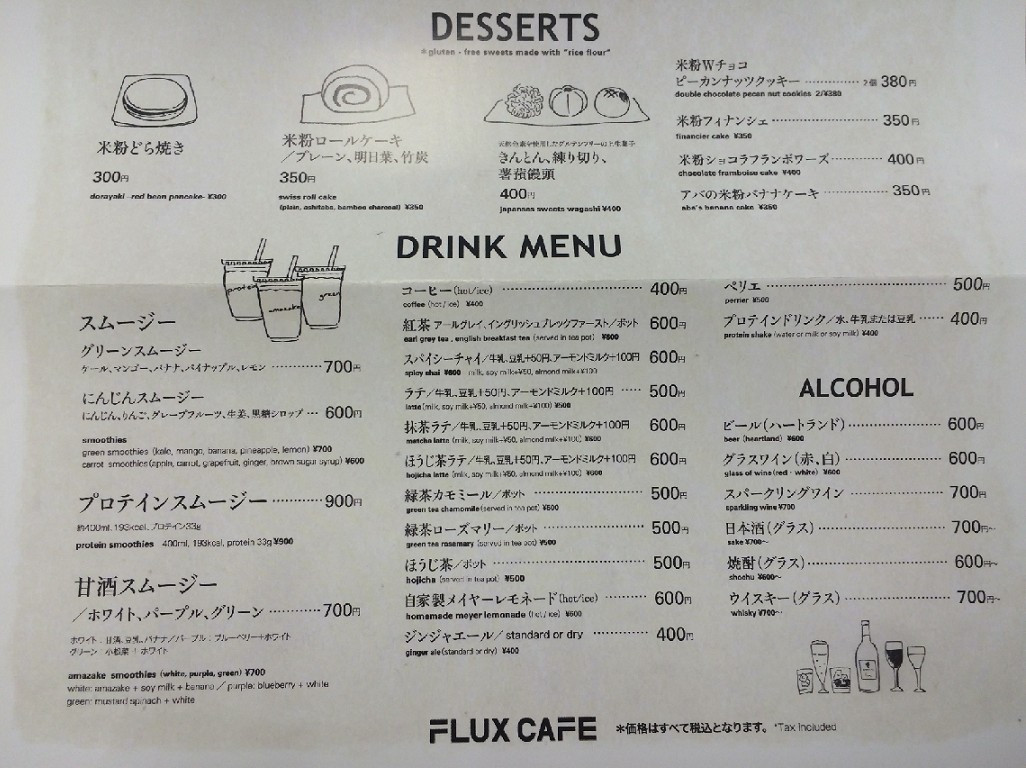 DESSERTS
*gluten - free sweets made with "rice flour"
米粉どら焼き
300円
dorayaki -red bean pancake- ¥300
米粉ロールケーキ
／プレーン、明日葉、竹炭
350円
swiss roll cake
(plain, ashitaba, bamboo charcoal) ¥350
きんとん、練り切り、
薯蕷饅頭
400円
japanese sweets wagashi ¥400
米粉Wチョコ
ピーカンナッツクッキー ………… 2個 380円
double chocolate pecan nut cookies 2/¥380
米粉フィナンシェ ………… 350円
financier cake ¥350
米粉ショコラフランボワーズ ………… 400円
chocolate framboise cake ¥400
アバの米粉バナナケーキ ………… 350円
aba's banana cake ¥350
DRINK MENU
protein
amazake
green
スムージー
グリーンスムージー
ケール、マンゴー、バナナ、パイナップル、レモン ………… 700円
にんじんスムージー
にんじん、りんご、グレープフルーツ、生姜、黒糖シロップ … 600円
smoothies
green smoothies (kale, mango, banana, pineapple, lemon) ¥700
carrot smoothies(apple, carrot, grapefruit, ginger, brown sugar syrup) ¥600
プロテインスムージー ………… 900円
約400ml, 193kcal, プロテイン33g
protein smoothies 400ml, 193kcal, protein 33g ¥900
甘酒スムージー
／ホワイト、パープル、グリーン ………… 700円
ホワイト：甘酒、豆乳、バナナ／パープル：ブルーベリー＋ホワイト
グリーン：小松菜＋ホワイト
amazake smoothies (white, purple, green) ¥700
white: amazake + soy milk + banana ／ purple: blueberry + white
green: mustard spinach + white
コーヒー(hot/ice) ………… 400円
coffee (hot / ice) ¥400
紅茶 アールグレイ、イングリッシュブレックファースト／ポット 600円
earl grey tea , english breakfast tea (served in tea pot) ¥600
スパイシーチャイ／牛乳、豆乳+50円、アーモンドミルク+100円 600円
spicy chai ¥600 milk, soy milk+¥50, almond milk+¥100
ラテ／牛乳、豆乳+50円、アーモンドミルク+100円 …… 500円
latte(milk, soy milk+¥50, almond milk+¥100) ¥500
抹茶ラテ／牛乳、豆乳+50円、アーモンドミルク+100円 600円
matcha latte (milk, soy milk+¥50, almond milk+¥100) ¥600
ほうじ茶ラテ／牛乳、豆乳+50円、アーモンドミルク+100円 600円
hojicha latte (milk, soy milk+¥50, almond milk+¥100) ¥600
緑茶カモミール／ポット ………… 500円
green tea chamomile(served in tea pot) ¥500
緑茶ローズマリー／ポット ………… 500円
green tea rosemary (served in tea pot) ¥500
ほうじ茶／ポット ………… 500円
hojicha (served in tea pot) ¥500
自家製メイヤーレモネード(hot/ice) ………… 600円
homemade meyer lemonade (hot / ice) ¥600
ジンジャエール／standard or dry ………… 400円
ginger ale(standard or dry) ¥400
ペリエ ………… 500円
perrier ¥500
プロテインドリンク／水、牛乳または豆乳 …… 400円
protein shake (water or milk or soy milk) ¥400
ALCOHOL
ビール(ハートランド) ………… 600円
beer (heartland) ¥600
グラスワイン(赤、白) ………… 600円
glass of wine(red・white) ¥600
スパークリングワイン ………… 700円
sparkling wine ¥700
日本酒(グラス) ………… 700円〜
sake ¥700〜
焼酎(グラス) ………… 600円〜
shochu ¥600〜
ウイスキー(グラス) ………… 700円〜
whisky ¥700〜
FLUX CAFE
＊価格はすべて税込となります。*Tax Included